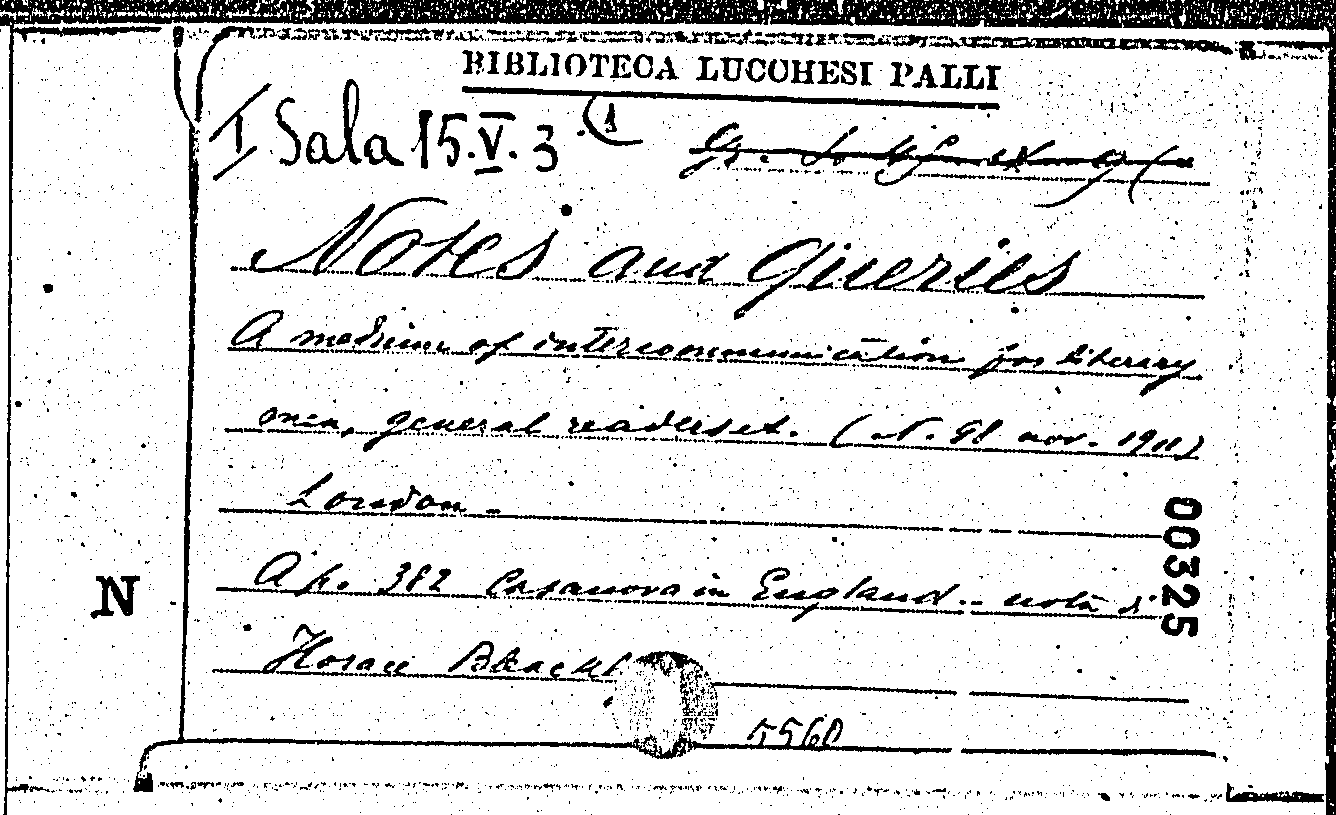 BIBLIOTECA LUCCHESI PALLI
I Sala 15.V.3 (1
Notes and Queries
A medium of intercommunication for literary
men, general readers et. (N. 98 nov. 1911)
London -
A p. 382 Casanova in England - nota di
Horace
5560
N
00325